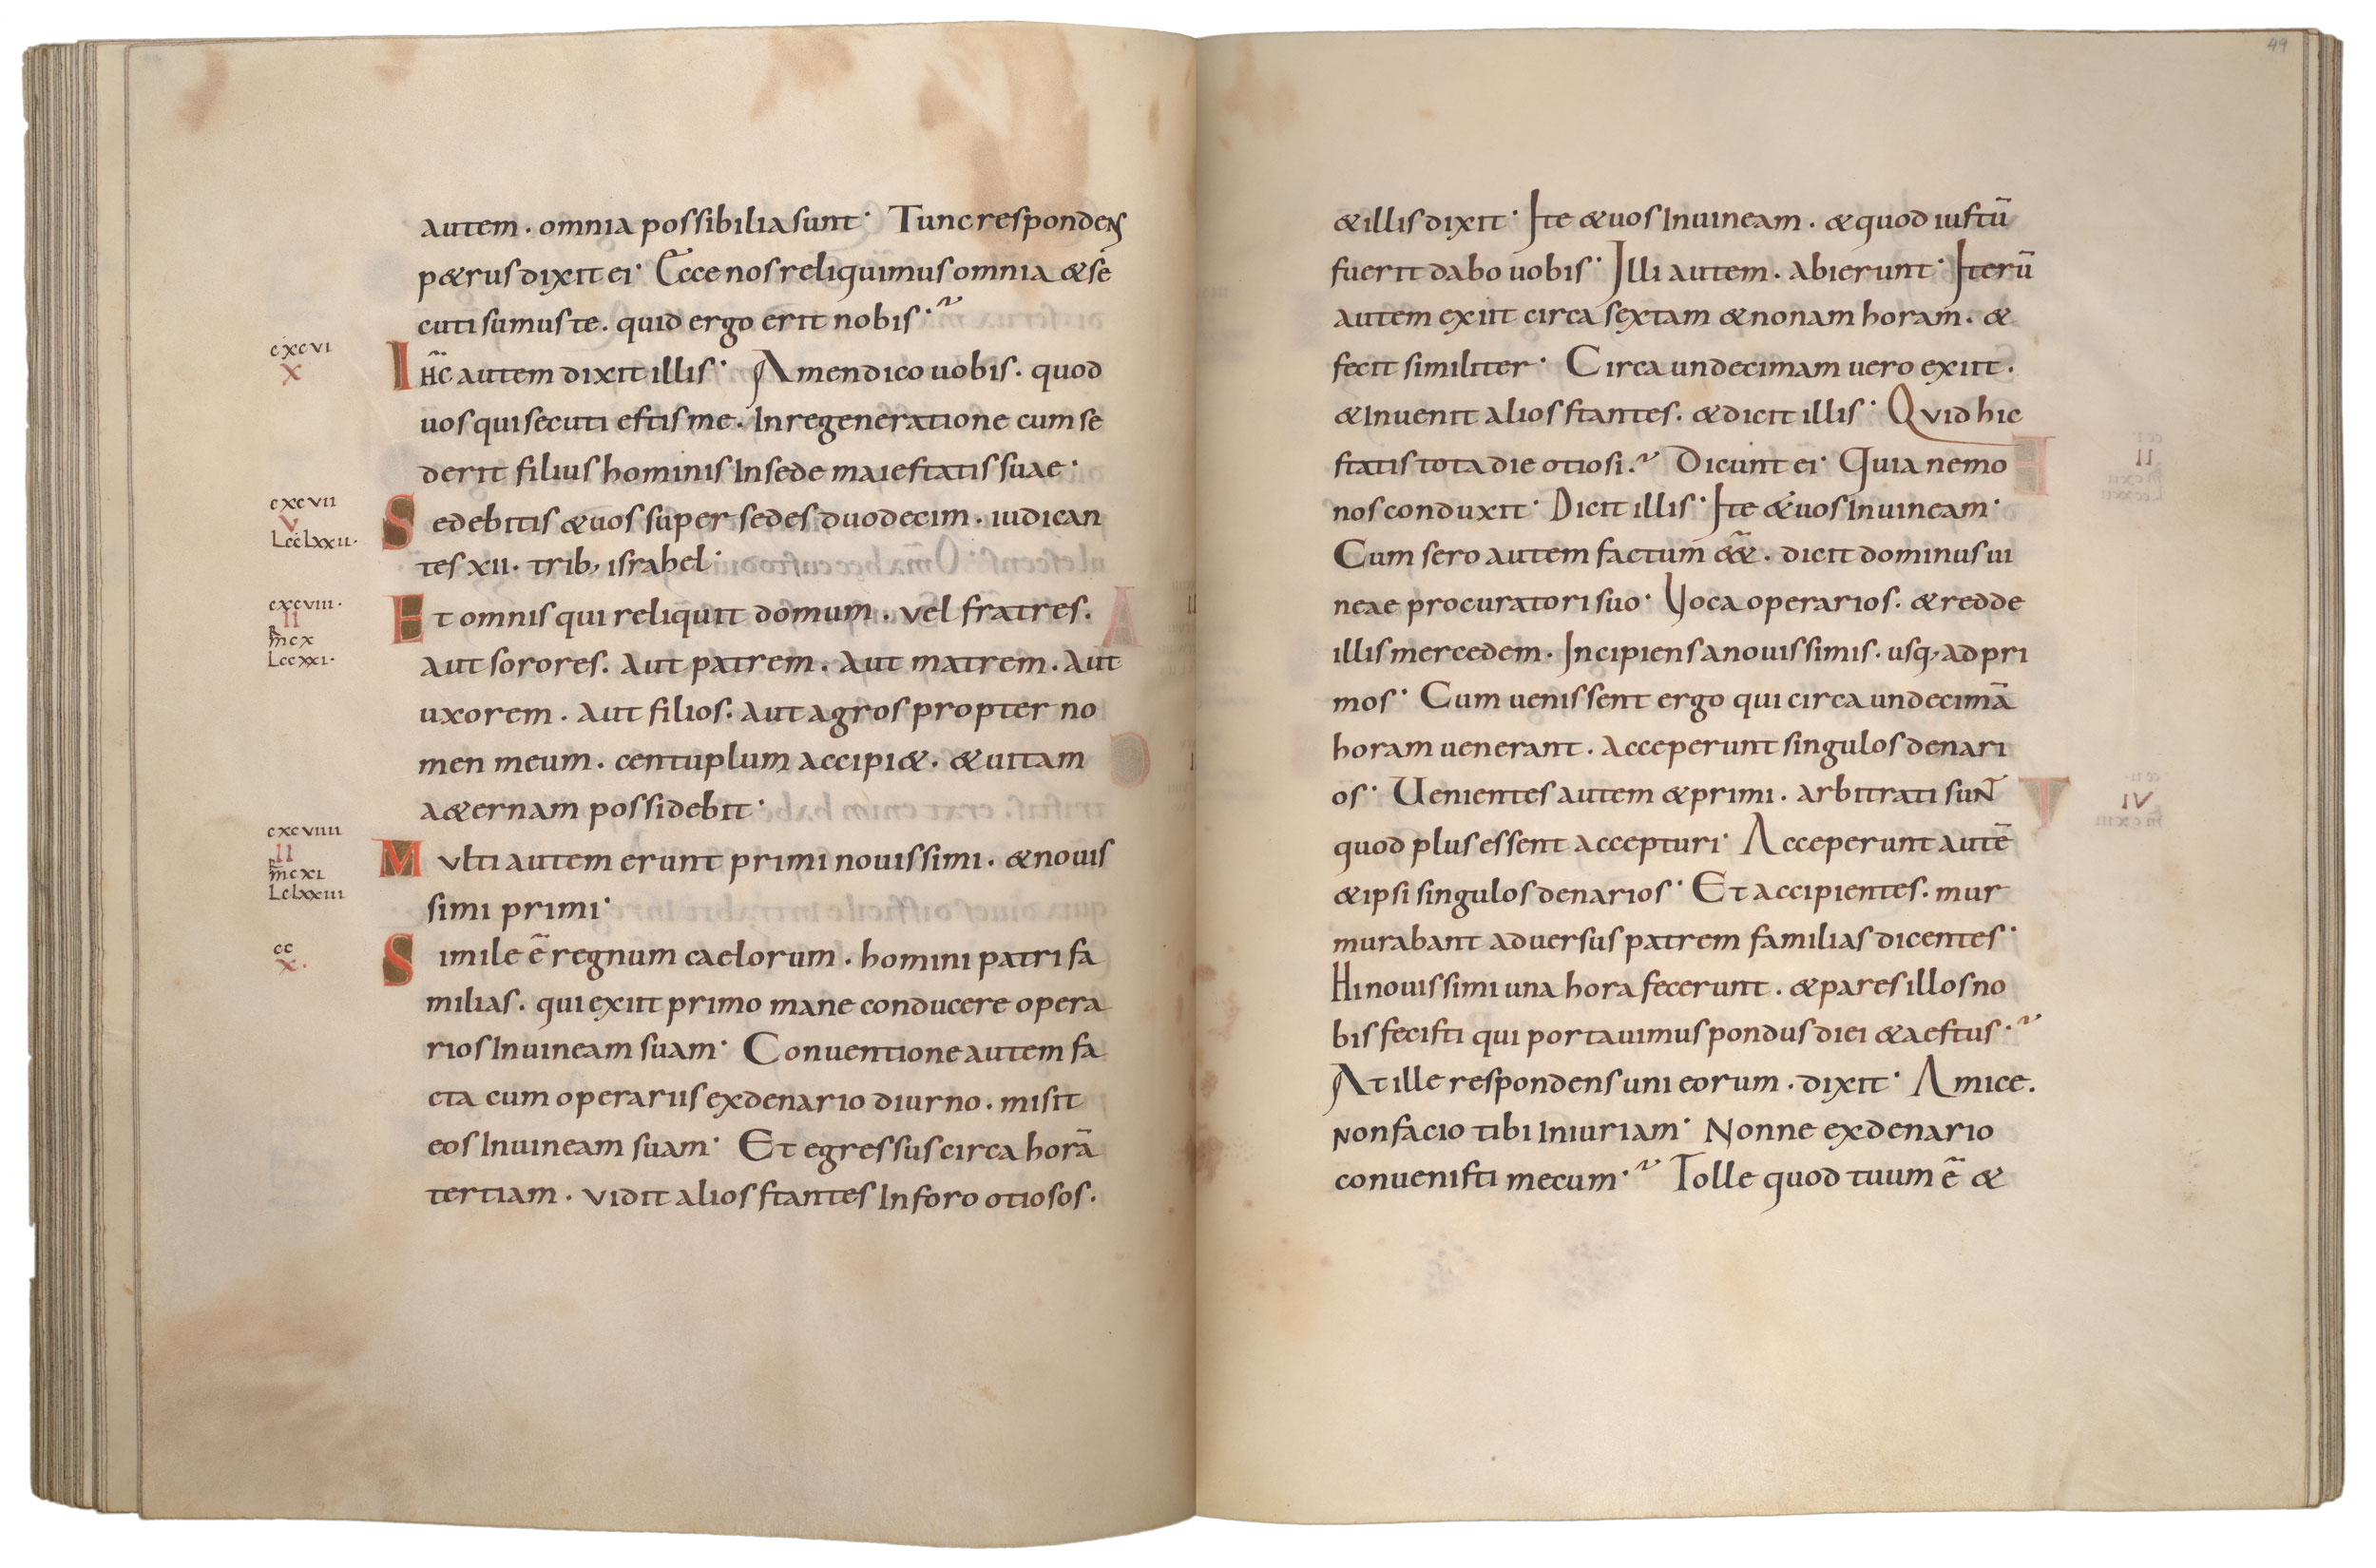 autem. omnia possibilia sunt· Tunc respondens
p&rus dixit ei· Ecce nos reliquimus omnia & se
cuti sumus te. quid ergo erit nobis·
cxcvi
x
Ihc̄ autem dixit illis· Amen dico uobis. quod
uos qui secuti estis me. In regeneratione cum se
derit filius hominis In sede maiestatis suae·
cxcvii
v
Lcclxxii·
Sedebitis & uos super sedes duodecim. iudican
tes xii. trib, israhel·
cxcviii·
ii
mcx
Lccxxi·
Et omnis qui reliquit domum. vel fratres.
aut sorores. aut patrem. aut matrem. aut
uxorem. aut filios. aut agros propter no
men meum. centuplum accipi&. & uitam
a&ernam possidebit·
cxcviiii
ii
mcxi
Lclxxiii
Multi autem erunt primi nouissimi. & nouis
simi primi·
cc
x.
Simile ē regnum caelorum. homini patri fa
milias. qui exiit primo mane conducere opera
rios In uineam suam· Conuentione autem fa
cta cum operariis ex denario diurno. misit
eos In uineam suam· Et egressus circa horā
tertiam. vidit alios stantes In foro otiosos.
49
& illis dixit· Ite & uos In uineam. & quod iustū
fuerit dabo uobis· Illi autem. abierunt· Iterū
autem exiit circa sextam & nonam horam. &
fecit similiter· Circa undecimam uero exiit.
& Inuenit alios stantes. & dicit illis· Quid hic
statis tota die otiosi. Dicunt ei· Quia nemo
nos conduxit· Dicit illis· Ite & uos In uineam·
Cum sero autem factum ēē&. dicit dominus ui
neae procuratori suo· Voca operarios. & redde
illis mercedem. Incipiens a nouissimis. usq, ad pri
mos· Cum uenissent ergo qui circa undecimā
horam uenerant. acceperunt singulos denari
os· Uenientes autem & primi. arbitrati sunt
quod plus essent accepturi· Acceperunt autē
& ipsi singulos denarios· Et accipientes. mur
murabant aduersus patrem familias dicentes·
Hi nouissimi una hora fecerunt. & pares illos no
bis fecisti qui portauimus pondus diei & aestus·
At ille respondens uni eorum. dixit· Amice.
non facio tibi Iniuriam· Nonne ex denario
conuenisti mecum· Tolle quod tuum ē &